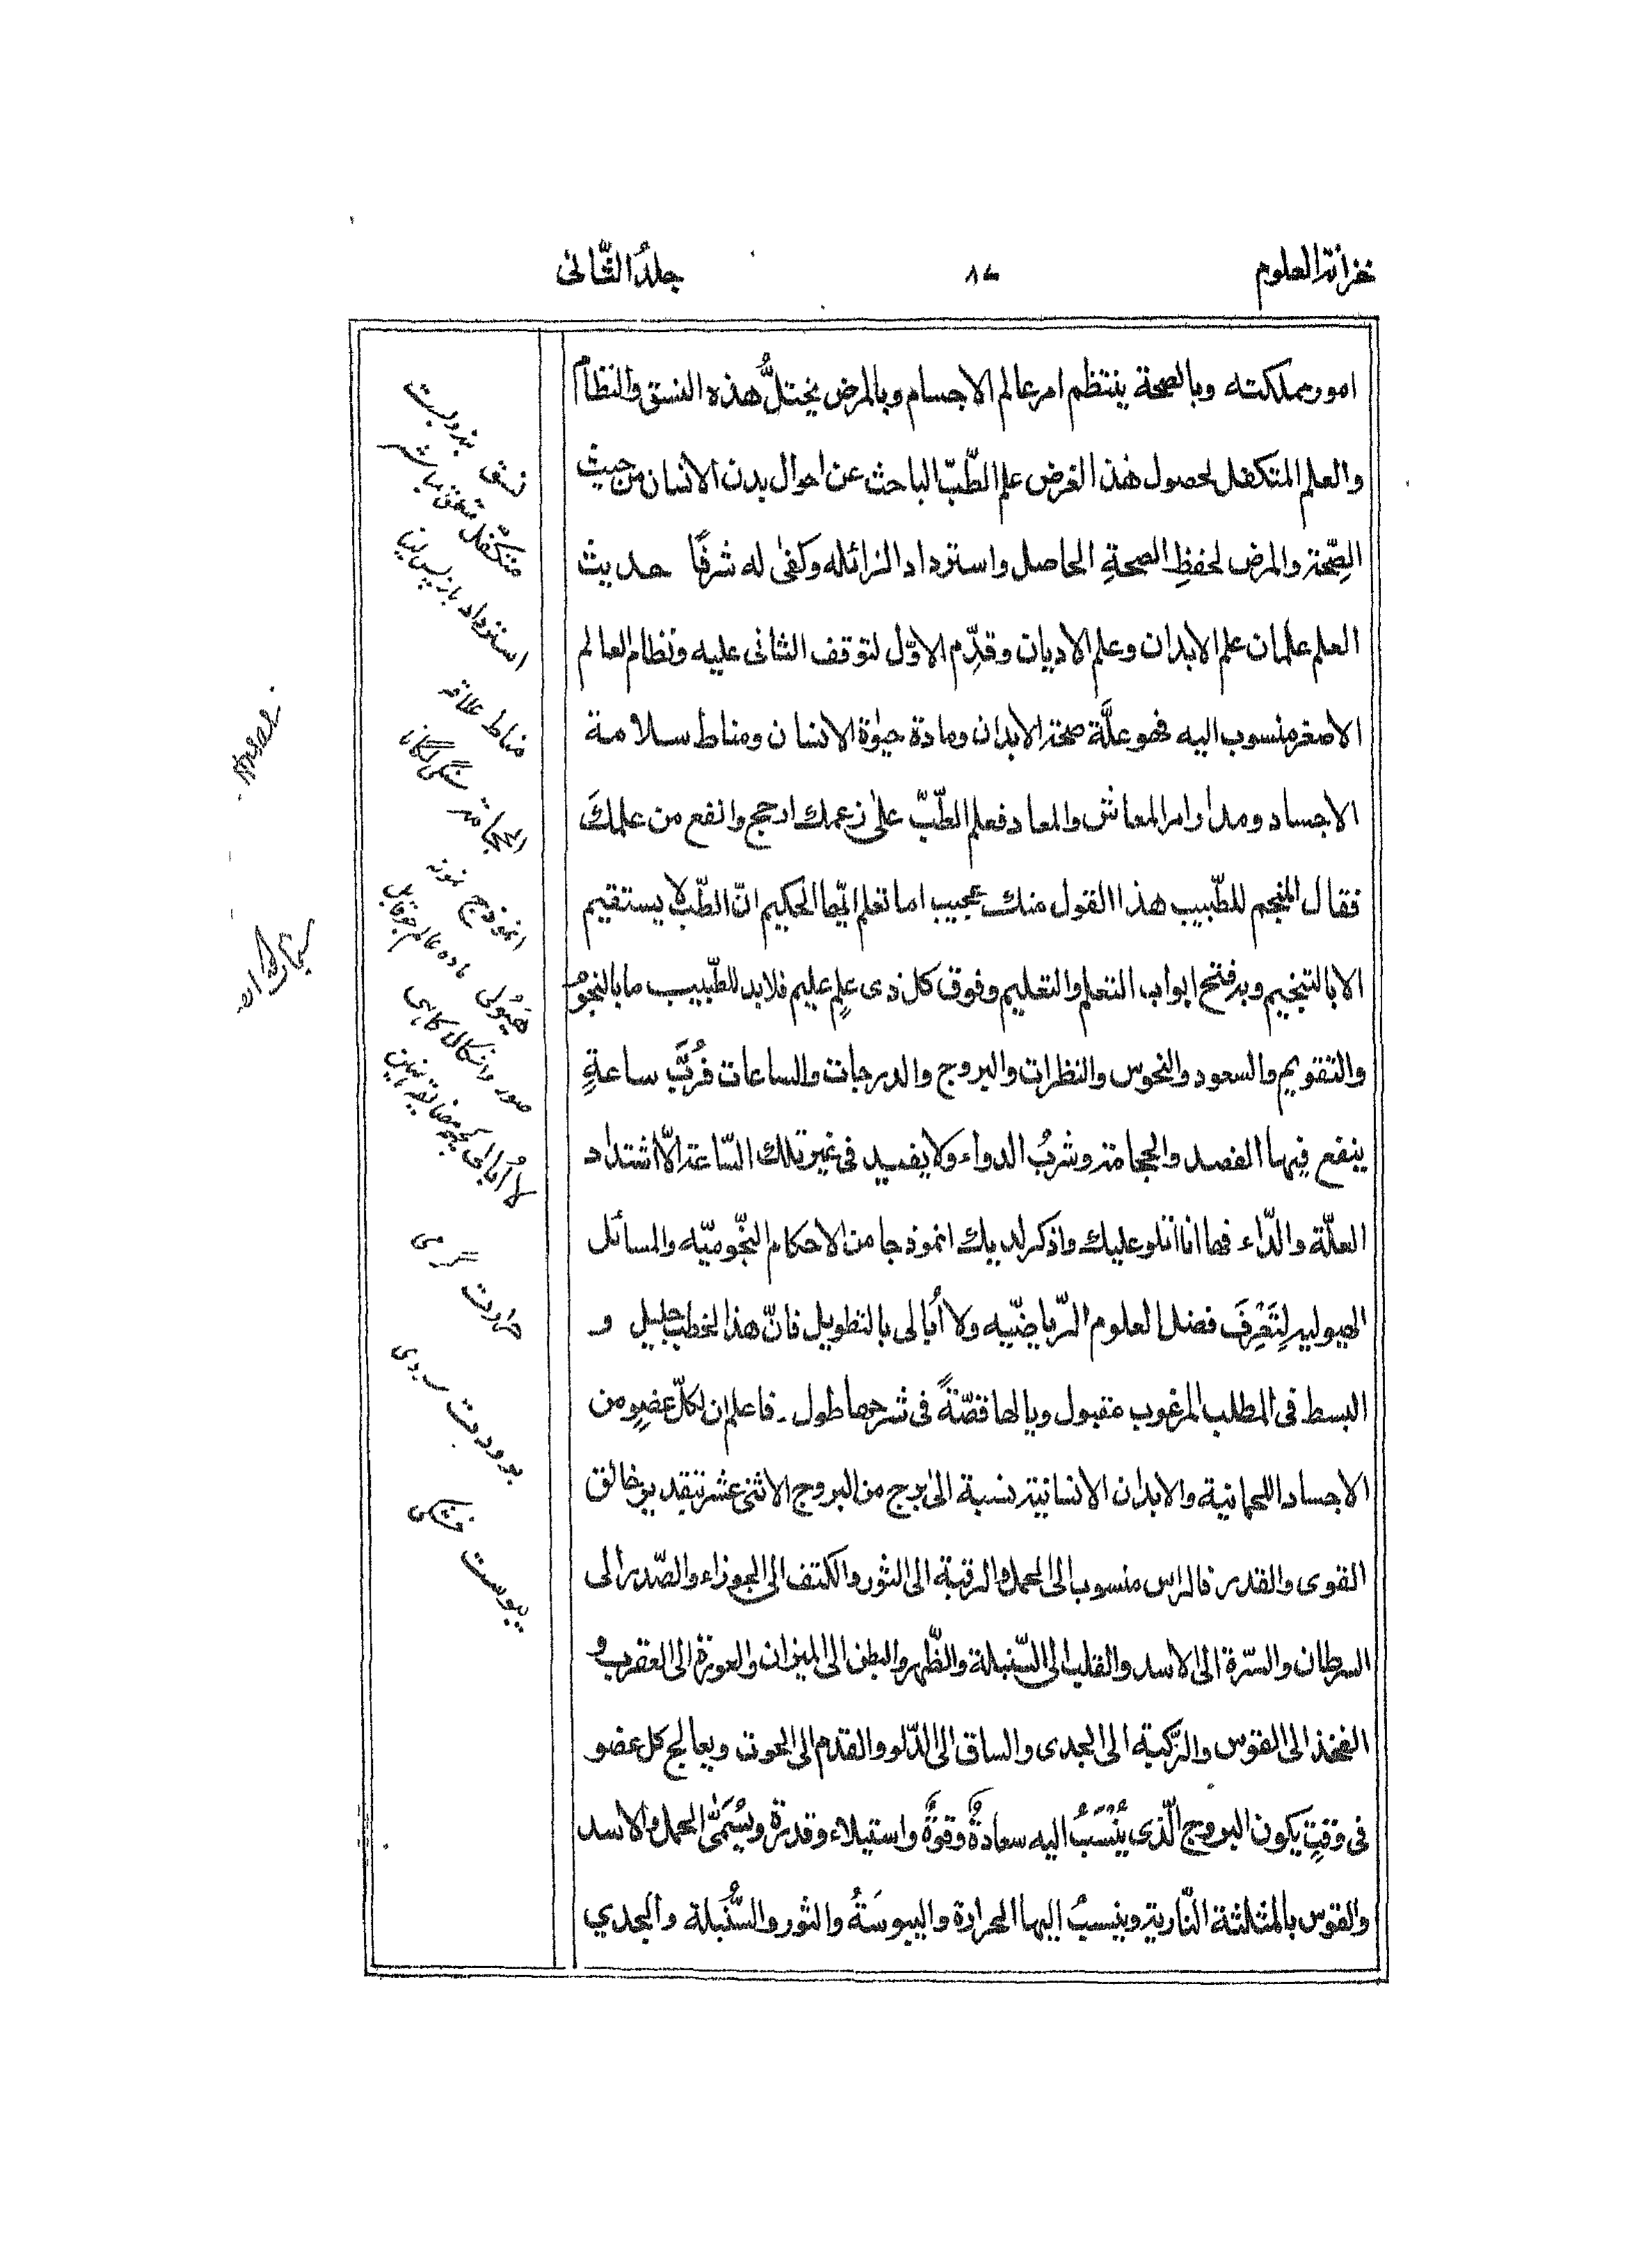 خزانة العلوم
٨٤
جلدُ الثّانی
امور مملكته وبالصحة ينتظم امر عالم الاجسام وبالمرض يختلُّ هذه النسق والنظام
والعلم المتكفل لحصول هٰذا الغرض علم الطّبّ الباحث عن احوال بدن الانسان من حيث
الصِّحة والمرض لحفظِ الصحةِ الحاصل واسترداد الزائله وكفىٰ له شرفًا حديث
العلم علمان علم الابدان وعلم الاديان وقدِّم الاوّل لتوقف الثانی عليه ونظام العالم
الاصغر منسوب اليه فهو علَّة صحة الابدان ومادة حيٰوة الانسان ومناط سلامة
الاجساد ومدار امر المعاش والمعاد فعلم الطّبّ علىٰ زعمك ارجح وانفع من علمكَ
فقال المنجم للطّبيب هذا القول منك عجيب اما تعلم ايّها الحكيم انّ الطّب لا يستقيم
الا بالتنجيم وبه فتح ابواب التعلم والتعليم وفوق كل ذی علمٍ عليم فلابد للطّبيب ما بالنجوم
والتقويم والسعود والنحوس والنظرات والبروج والدرجات والساعات فرُبَّ ساعةٍ
ينفع فيها الفصد والحجامة وشربُ الدواء ولا يفيد فی غير تلك السّاعة الّا اشتداد
العلّة والدّاء فها انا اتلو عليك واذكر لديك انموذجا من الاحكام النّجوميّه والمسائل
الهيوليه لِتَعْرِفَ فضل العلوم الرّياضيّيه ولا أُبالی بالتطويل فانّ هذا الخطب جليل و
البسط فی المطلب المرغوب مقبول ويالها قصّةً فی شرحها طول ۔ فاعلم ان لكلّ عضوٍ من
الاجساد اللحمانية والابدان الانسانية نسبة الىٰ برج من البروج الاثنی عشر بتقدير خالق
القوی والقدر فالراس منسوب الى الحمل والرقبة الى الثور والكتف الى الجوزاء والصّدر الى
السرطان والسّرة الى الاسد والقلب الى السّنبلة والظّهر والبطن الى الميزان والعورة الى العقرب و
الفخذ الى القوس والرّكبة الى الجدی والساق الى الدّلو والقدم الى الحوت ويعالج كل عضو
فی وقتٍ يكون البروج الّذی يُنْسَبُ اليه سعادةٌ وقوةٌ واستيلاء وقدرة ويُسَمّٰى الحمل والاسد
والقوس بالمثلثة النّارية وينسبُ اليها الحرارة واليبوسَةُ والثور والسُّنبلة والجدي
نسق بندوبست
متكفّل متعهد
استرداد باز پس لینا
مناط علاقہ
الحجامة
انموذج نمونہ
هيُولی
لا أُبالی
حرارت گرمی
برودت سردی
یبوست خشکی